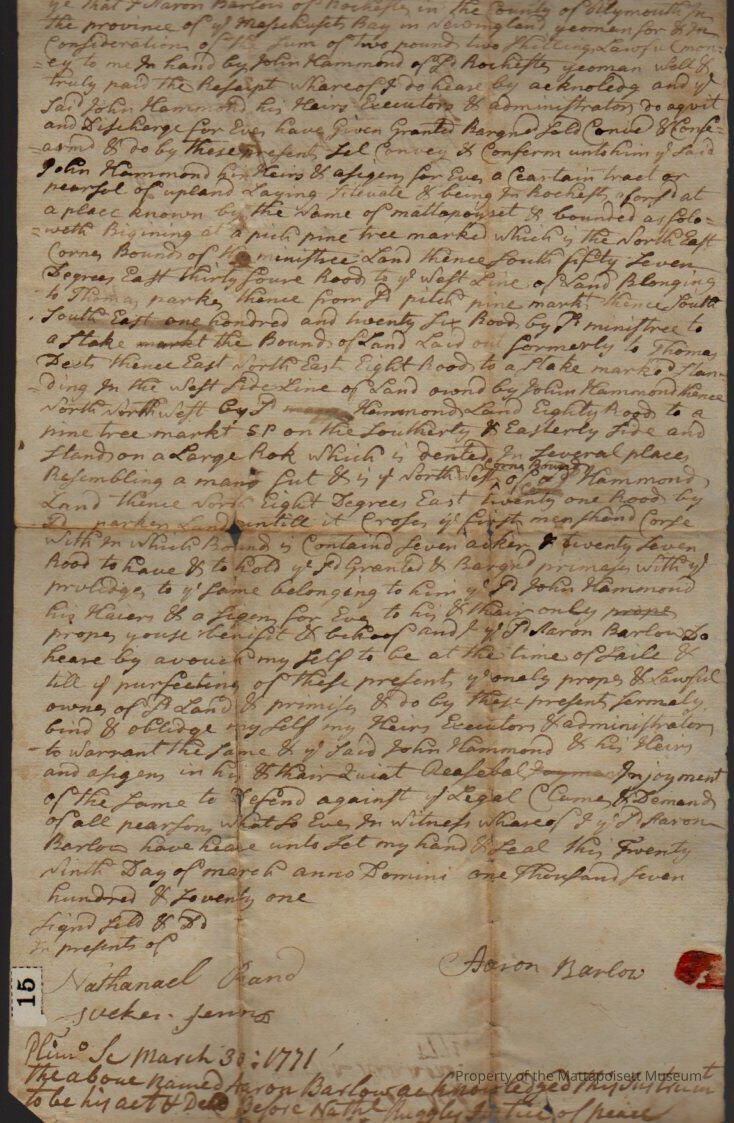 ye that I Aaron Barlow of Rochester in the County of Plymouth In
the province of ye Massachusets Bay in Newingland yeoman for & In
Consideration of the Sum of two pounds two Shilling Lawful mon=
=ey to me In hand by John Hammond of sd Rochester yeoman well &
truly paid the Receipt whareof I do heare by acknoledg and ye
Said John Hammond his Heirs Executors & administrators do aqvit
and Discharge for Ever have Given Granted Bargnd Sold Convd & Conf=
=armd & do by these presents Sel Convey & Conferm unto him ye Said
John Hammond his Heirs & asigens for Ever a Ceartain tract or
pearsel of upland Laying Situate & being In Rochester forsd at
a place known by the Name of mattapoyset & bounded as folo=
=weth Bigining at a pich pine tree marked which is the North East
Corner Bounds of the ministree Land thence South fifty Seven
Degrees East thirty foure Rood to ye West Line of Land Blonging
to Thomas parker thence from sd pitch pine markt thence South
South East one hundred and twenty Six Rood by sd ministree to
a Stake markt the Bounds of Land Laid out formerly to Thomas
Dexter thence East North East Eight Rood to a Stake markd Stan=
=ding In the West Side Line of Land ownd by John Hammond thence
North North West by sd Hammonds Land Eighty Rood to a
pine tree markt SP on the Southerly & Easterly Side and
Stands on a Large Rok which is dented In Several places
Resembling a mans fut & is ye North West Corner Bounds of sd Hammonds
Land thence North Eight Degrees East twenty one Rood by
sd parkers Land untill it Croses ye first menshond Corse
with In which Bounds is Containd Seven acker & twenty Seven
Rood to have & to hold ye sd Granted & Bargnd primeses with ye
prvlidges to ye Same belonging to him ye sd John Hammond
his Haiers & asigens for Ever to his & thair only prope
proper youse benifit & behoof and I ye sd Aaron Barlow Do
heare by avouch my Self to be at the time of Saile &
till ye purfecting of these presents ye onely proper & Lawful
owner of sd Land & primises & do by these presents fermely
bind & oblidge my Self my Heirs Executors & administrators
to warrant the Same & ye Said John Hammond & his Heirs
and asigens in his & thair Quiat Injoyment
of the Same to Defend against ye Legal Clames & Demands
of all pearsons what So Ever In witness whareof I ye sd Aaron
Barlow have heare unto Set my hand & Seal this Twenty
Ninth Day of march anno Domini one Thousand Seven
hundred & Seventy one
Signd Seld & Dd
In presents of
Nathanael Rand Aaron Barlow
15
Plimo Sc March 30: 1771
the above Named Aaron Barlow acknowledged this Instrumt
to be his act & Deed Before Nathl Ruggles Justice of peace
Property of the Mattapoisett Museum